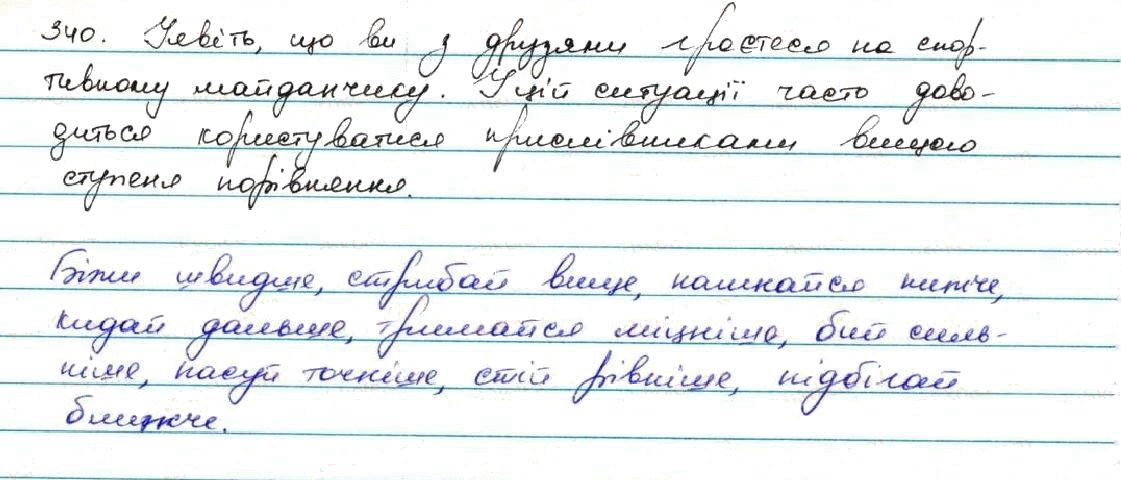 340. Уявіть, що ви з друзями граєтеся на спор-
тивному майданчику. У цій ситуації часто дово-
диться користуватися прислівниками вищого
ступеня порівняння.
Біжи швидше, стрибай вище, нагинайся нижче,
кидай дальше, тримайся міцніше, бий силь-
ніше, пасуй точніше, стій рівніше, підбігай
ближче.